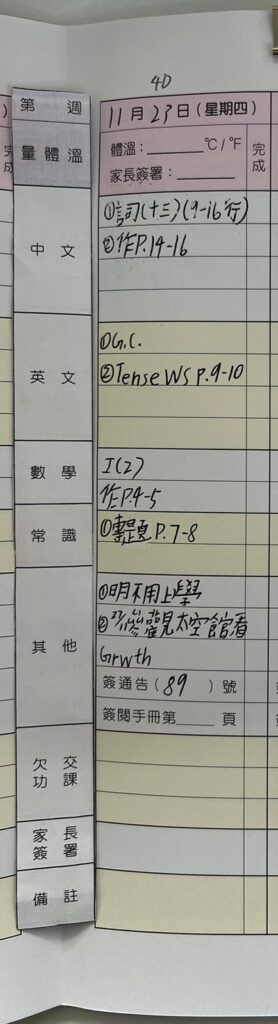 4D
第 週
11月23日(星期四)
量體溫
體溫:______ ℃/℉
家長簽署:______
完成
中文
①詞(十三)(9-16行)
②作P.14-16
英文
①G.C.
②Tense WS P.9-10
數學
I(2)
作P.4-5
常識
①專題P.7-8
其他
①明不用上學
②27/11參觀太空館看
Grwth
簽通告(89)號
簽閱手冊第____頁
欠交功課
家長簽署
備註